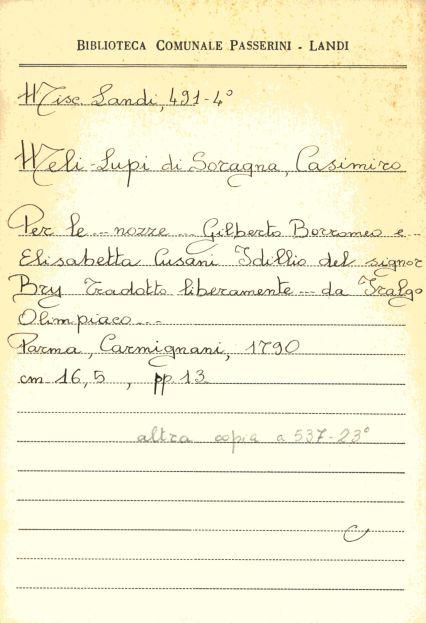 BIBLIOTECA COMUNALE PASSERINI - LANDI
Misc. Landi, 491-4°
Meli-Lupi di Soragna, Casimiro
Per le ... nozze ... Gilberto Borromeo e ...
Elisabetta Cusani Idillio del signor
Bry Tradotto liberamente ... da Tralgo
Olimpiaco ...
Parma, Carmignani, 1790
cm 16,5 , pp 13
altra copia a 537-23°
C